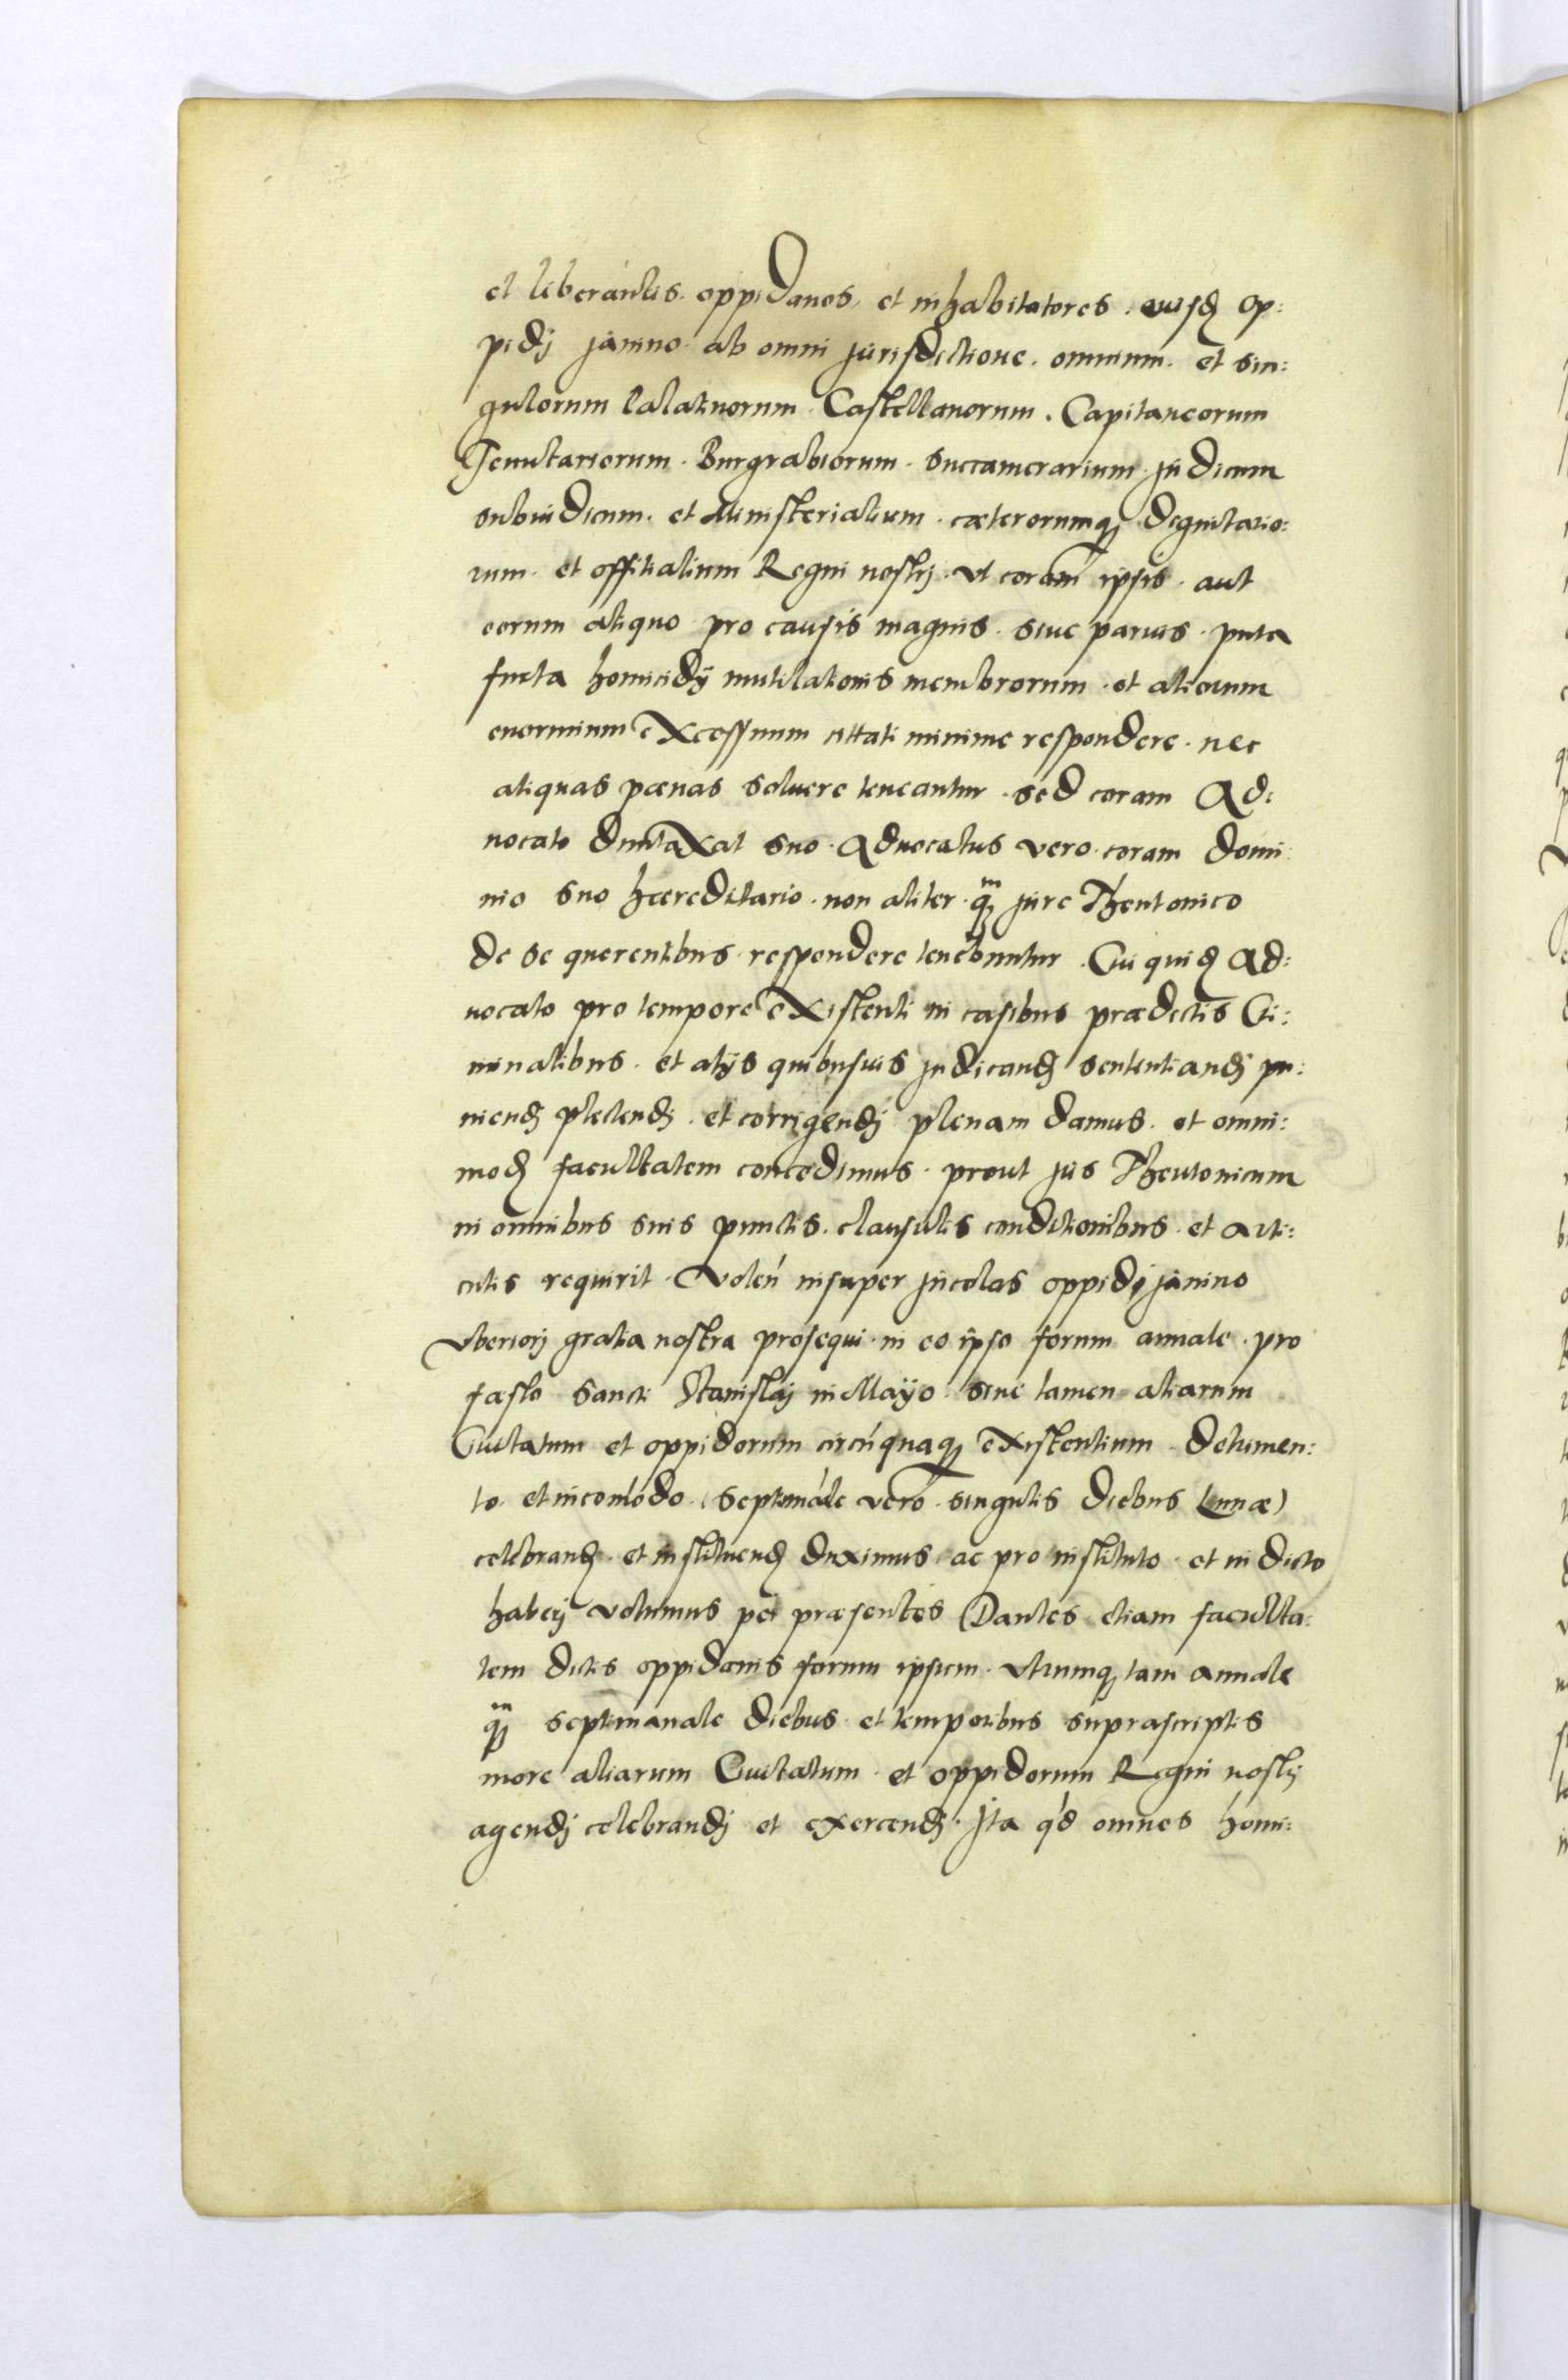 et liberantes. oppidanos, et inhabitatores. eiusđ Op:
pidj Janino. ab omni Jurisdictione. omnium. et sin:
gulorum Palatinorum. Castellanorum. Capitaneorum
Tenutariorum. Burgrabiorum. Succamerarium. Judicum
Subiudicum. et Ministerialium. caeterorumqꝫ Dignitario:
rum. et offitialium Regni nostrj. Vt coram ipsis. aut
eorum aliquo pro causis magnis. siue paruis. puta
furta homicidij mutilationis membrorum. et aliorum
enormium eXcessuum cittati minime respondere. nec
aliquas paenas soluere teneantur. sed coram Ad:
uocato DuntaXat suo. Aduocatus vero. coram Domi:
nio suo haereditario. non aliter. qꝫm Jure Theutonico
de se querentibus respondere tenebuntur. Cui quiđ Ad:
uocato pro tempore eXistenti in casibus praedictis Cri:
minalibus. et alijs quibusuis Judicandj sententiandj pu:
niendj plectendj. et corrigendj plenam damus. et omni:
modđ facultatem concedimus. prout Jus Theutonicum
in omnibus suis punctis. clausulis conditionibus. et arti:
culis requirit. Volen insuper Jncolas oppidj Janino
Vberiorj gratia nostra prosequi. in eo ipso forum annale. pro
faesto Sancti Stanislaj in Mayo. sine tamen aliarum
Ciuitatum et oppidorum circunquaqꝫ eXistentium. detrimen:
to. et incomodo. Septimanale vero. singulis diebus Lunae)
celebranđ. et instituenđ duximus. ac pro instituto. et indicto
haberj volumus per praesentes Dantes etiam faculta:
tem dictis oppidanis forum ipsum. Vtrumqꝫ tam annale
qꝫm septimanale diebus. et temporibus suprascriptis
more aliarum Ciuitatum. et oppidorum Regni nostrj
agendj celebrandj et exercendj. Jta q'd omnes homi: